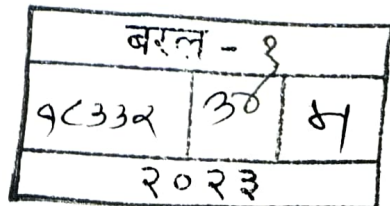 बरल - १
१८३३२ ३० ५१
२०२३